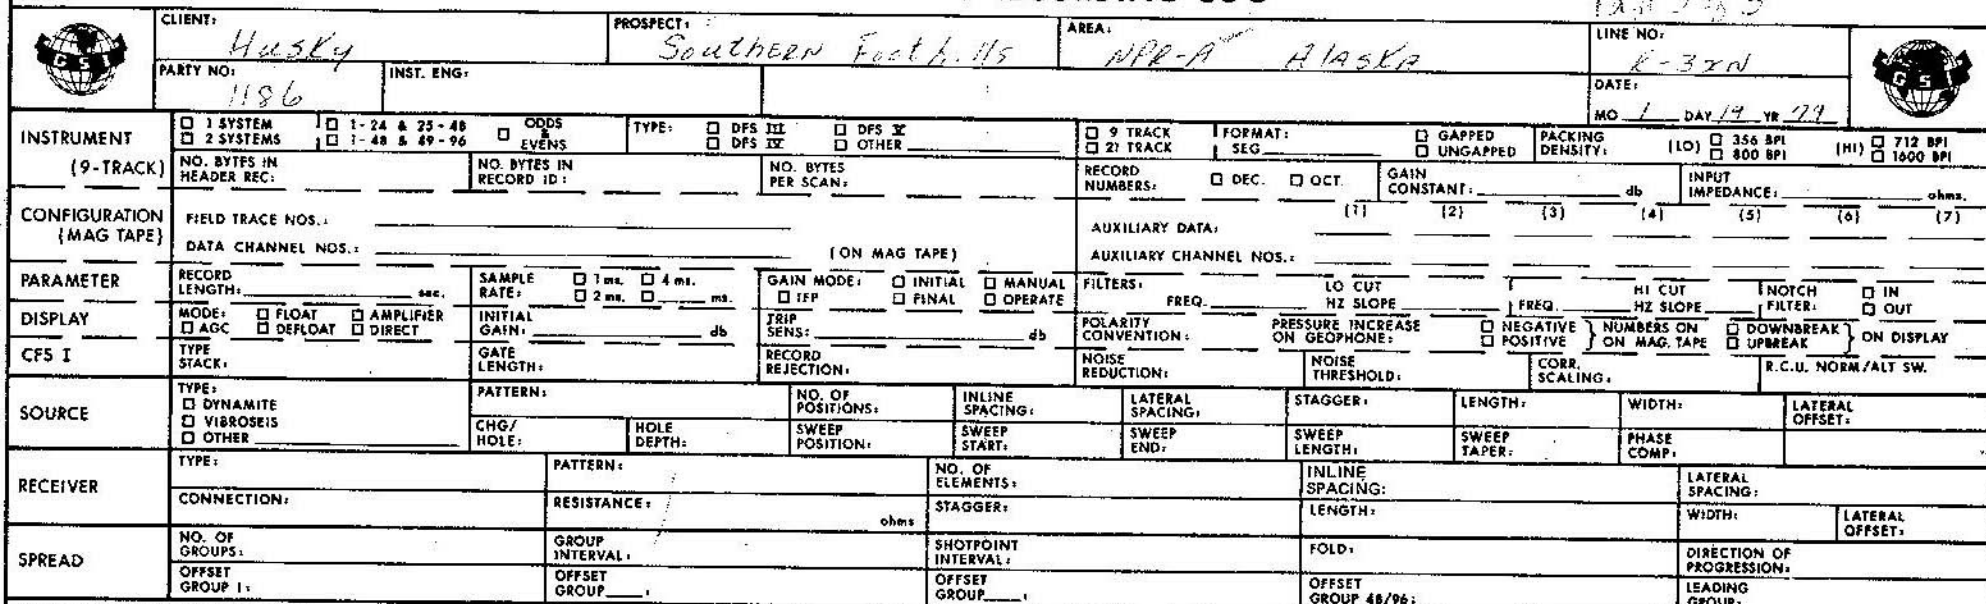 CLIENT: Husky PROSPECT: Southern Foothills AREA: NPR-A Alaska LINE NO: K-3XN
GSI GSI
PARTY NO: 1186 INST. ENG: DATE: MO 1 DAY 19 YR 79
INSTRUMENT (9-TRACK)
☐ 1 SYSTEM ☐ 1-24 & 25-48 ☐ ODDS & EVENS TYPE: ☐ DFS III ☐ DFS V ☐ 9 TRACK FORMAT: ☐ GAPPED PACKING DENSITY: (LO) ☐ 356 BPI (HI) ☐ 712 BPI
☐ 2 SYSTEMS ☐ 1-48 & 49-96 ☐ DFS IV ☐ OTHER ☐ 21 TRACK SEG ☐ UNGAPPED ☐ 800 BPI ☐ 1600 BPI
NO. BYTES IN HEADER REC: NO. BYTES IN RECORD ID: NO. BYTES PER SCAN: RECORD NUMBERS: ☐ DEC. ☐ OCT. GAIN CONSTANT: db INPUT IMPEDANCE: ohms.
CONFIGURATION (MAG TAPE)
FIELD TRACE NOS.: AUXILIARY DATA: (1) (2) (3) (4) (5) (6) (7)
DATA CHANNEL NOS.: (ON MAG TAPE) AUXILIARY CHANNEL NOS.:
PARAMETER RECORD LENGTH: sec. SAMPLE RATE: ☐ 1 ms. ☐ 4 ms. ☐ 2 ms. ☐ ms. GAIN MODE: ☐ INITIAL ☐ MANUAL ☐ IFP ☐ FINAL ☐ OPERATE FILTERS: FREQ. LO CUT HZ SLOPE FREQ. HI CUT HZ SLOPE NOTCH FILTER: ☐ IN ☐ OUT
DISPLAY MODE: ☐ FLOAT ☐ AMPLIFIER ☐ AGC ☐ DEFLOAT ☐ DIRECT INITIAL GAIN: db TRIP SENS: db POLARITY CONVENTION: PRESSURE INCREASE ON GEOPHONE: ☐ NEGATIVE ☐ POSITIVE } NUMBERS ON MAG. TAPE ☐ DOWNBREAK ☐ UPBREAK } ON DISPLAY
CFS I TYPE STACK: GATE LENGTH: RECORD REJECTION: NOISE REDUCTION: NOISE THRESHOLD: CORR. SCALING: R.C.U. NORM/ALT SW.
SOURCE TYPE: ☐ DYNAMITE ☐ VIBROSEIS ☐ OTHER
PATTERN: NO. OF POSITIONS: INLINE SPACING: LATERAL SPACING: STAGGER: LENGTH: WIDTH: LATERAL OFFSET:
CHG/HOLE: HOLE DEPTH: SWEEP POSITION: SWEEP START: SWEEP END: SWEEP LENGTH: SWEEP TAPER: PHASE COMP:
RECEIVER TYPE: PATTERN: NO. OF ELEMENTS: INLINE SPACING: LATERAL SPACING:
CONNECTION: RESISTANCE: ohms STAGGER: LENGTH: WIDTH: LATERAL OFFSET:
SPREAD NO. OF GROUPS: GROUP INTERVAL: SHOTPOINT INTERVAL: FOLD: DIRECTION OF PROGRESSION:
OFFSET GROUP 1: OFFSET GROUP : OFFSET GROUP : OFFSET GROUP 48/96: LEADING GROUP: